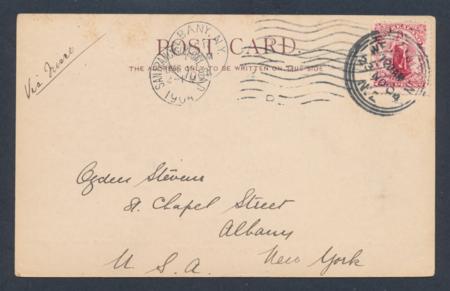 Via Frisco
ALBANY, N.Y.
1904
POST CARD.
THE ADDRESS ONLY TO BE WRITTEN ON THIS SIDE.
N.Z.
Ogden Stevens
St. Chapel Street
Albany
U. S. A. New York